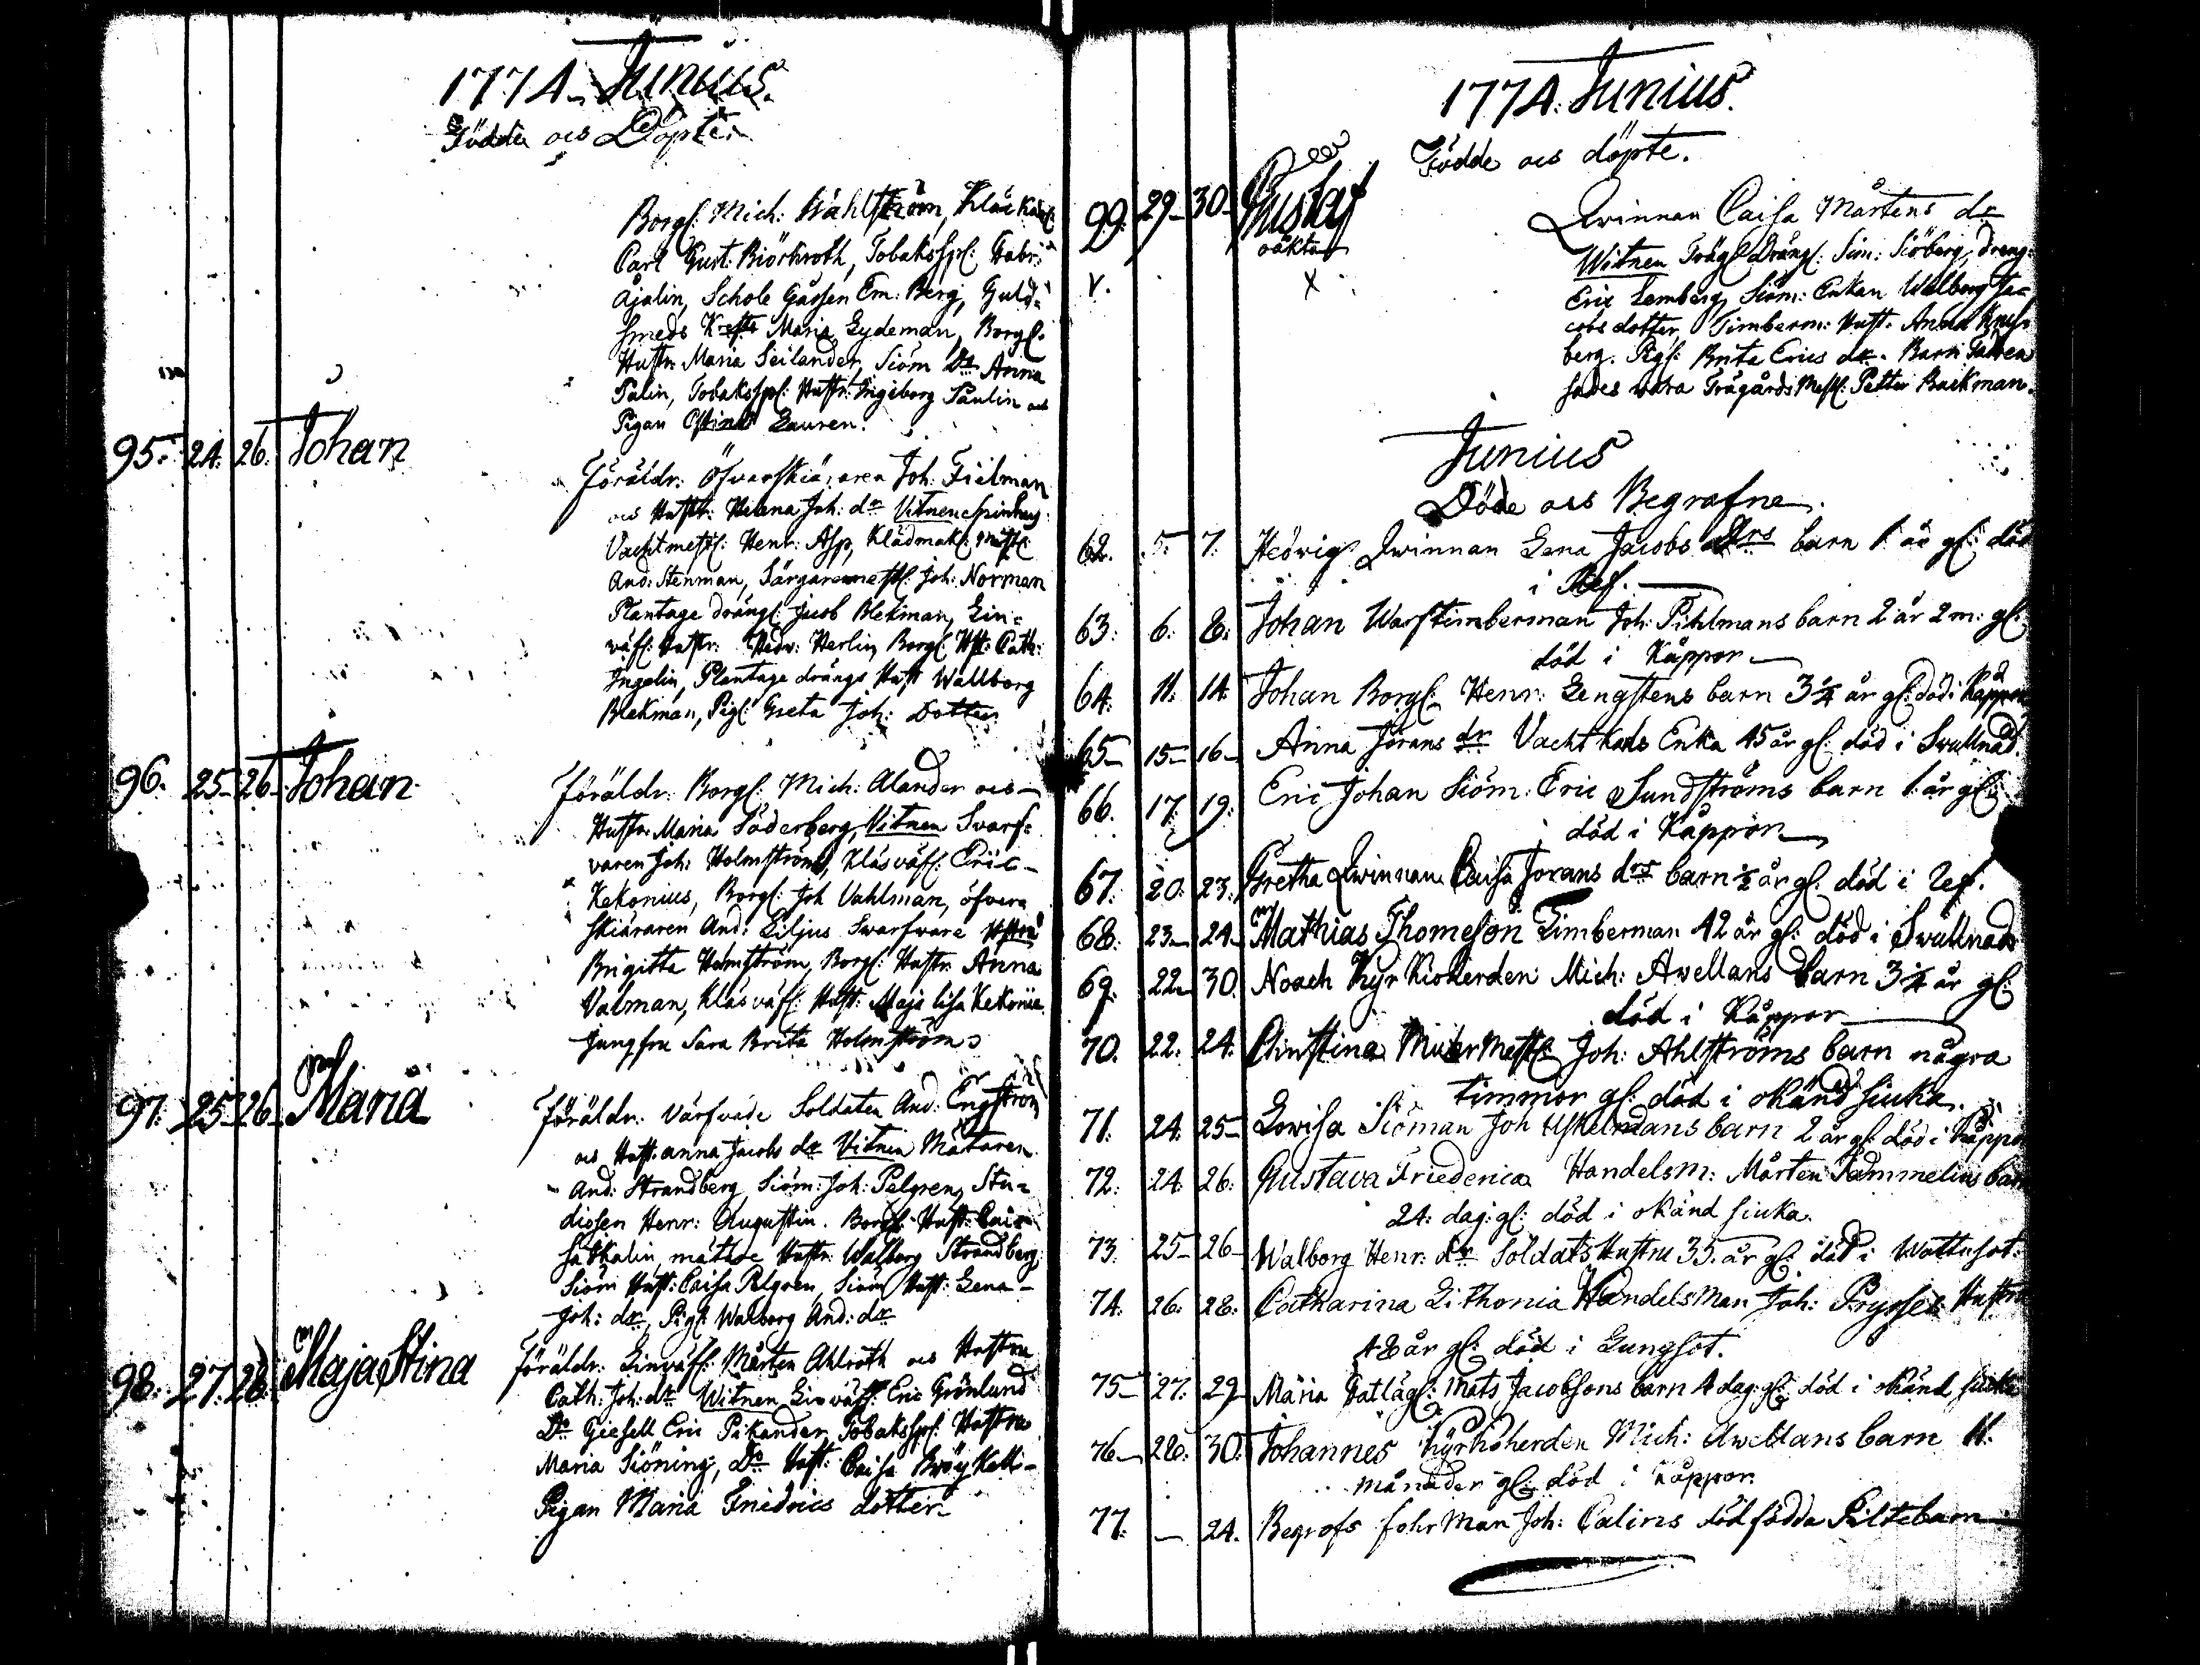 1774. Junius.
Födde ocs Döpte.
Borgs: Mich: Wahlström, Kläckars:
Carl Gust: Biörkroth, Tobakssps: Gabr:
Ajalin, Schole Gåssen Em: Berg, Guld-
smeds Maria Lydeman, Borgs:
Hustr. Maria Seilander, Siöm Dr Anna
Palin, Tobakssps: Hustr: Ingeborg Paulin ocs
Pigan Stina Lauren.
95. 24. 26. Johan
Föräldr: Öfvarskiäraren Joh: Fielman
ocs Hustr: Helena Joh: dr Vitnen
Vachtmest: Henr: Asp, Klädmak: Mest:
And: Stenman, Färgaremest: Joh: Norman
Plantage drängs: Jacob Blekman, Lin-
väfs: Hustr: Hedv: Herlin, Borgs: Hst: Cath:
Ingelin, Plantage drängs Hust Wallborg
Blekman, Pigs: Greta Joh: Dotter.
96. 25 26. Johan
Föräldr: Borgs: Mich: Alander ocs
Hustr. Maria Söderberg, Vitnen Svarf-
varen Joh: Holmström, Kläsväfs: Eric
Kekonius, Borgs: Joh Vahlman, öfver
skiäraren And: Liljus Swarfvare Hstru
Brigitta Holmström, Borgs: Hustr. Anna
Valman, Kläsväfs: Hust: Maja lisa Kekonia
Jungfru Sara Brita Holmström
97. 25 26 Maria
Föräldr: Värfvade Soldaten And: Engström
ocs Hust: anna Jacobs dr Vitnen Mätaren
And: Strandberg Siöm: Joh: Pelgren, Stu-
diosen Henr: Augustin. Borgs: Hust: Cai-
sa Kalin, mätare Hustr: Walborg Strandberg
Siöm Hust: Caisa Pelgren, Siöm Hust: Lena
Joh: dr, Pigs: Walborg And: dr
98. 27. 28. Maja Stina
Föräldr: Linväfs: Mårten Ahlroth ocs Hustru
Cath: Joh: dr Witnen Linväfs: Eric Grönlund
Do Giesell Eric Pikander, Tobakssps: Hustru
Maria Siöning, Do Hust: Caisa
Pigan Maria Friedrics dotter
1774. Junius.
Födde ocs döpte.
99. 29 30 Gustaf
oäkta
Qwinnan Caisa Mårtens dr
Witnen Trägs Drängs: Sim: Siöberg, dreng:
Eric Lemberg, Siöm: Enkan Walborg Ja-
cobs dotter, Timberm: Hust: Anna
berg. Pigs: Brita Erics dr. Barn Fadren
sades vara Trägårds Mest: Petter Backman.
Junius
Döde ocs Begrafne.
62. 5. 7. Hedvig Qwinnan Lena Jacobs drs barn 1 år gl: död
i Ref.
63. 6. 8. Johan Warftimberman Joh: Pihlmans barn 2 år 2 m: gl:
död i Kåppor
64. 11. 14. Johan Borgs: Henr: Lengstens barn 3¼ år gl: död i Kåppor
65 15 16 Anna Jörans dr Vachtkarls Enka 45 år gl: död i Swullnad.
66. 17. 19. Eric Johan Siöm: Eric Sundströms barn 1 år gl:
död i Kåppor
67. 20. 23. Gretha Qwinnan Caisa Jörans drs barn ½ år gl: död i ref.
68. 23 24 Mathias Thomeson Timberman 42 år gl: död i Swullnad
69. 22 30. Noach Kyrkioherden Mich: Awellans barn 3¼ år gl:
död i Kåppor
70. 22. 24. Christina Murmest: Joh: Ahlströms barn några
timmor gl: död i okänd siuka.
71. 24. 25 Lowisa Siöman Joh barn 2 år gl: död i Kåppor
72. 24. 26. Gustava Friederica Handelsm: Mårten Tammelins barn
24: dag: gl: död i okänd siuka.
73. 25 26 Walborg Henr: dr Soldats Hustru 35. år gl: död i Wattusot.
74. 26. 28. Catharina Lithonia Handels Man Joh: Pryssets Hustru
48 år gl: död i Lungsot.
75 27. 29 Maria Mats Jacobsons barn 4 dag: gl: död i okänd siuka
76 28. 30. Johannes Kyrkoherden Mich: Awellans barn 11.
månader gl: död i Kåppor.
77. — 24. Begrofs fohrMan Joh: Calins dödfödda Piltebarn